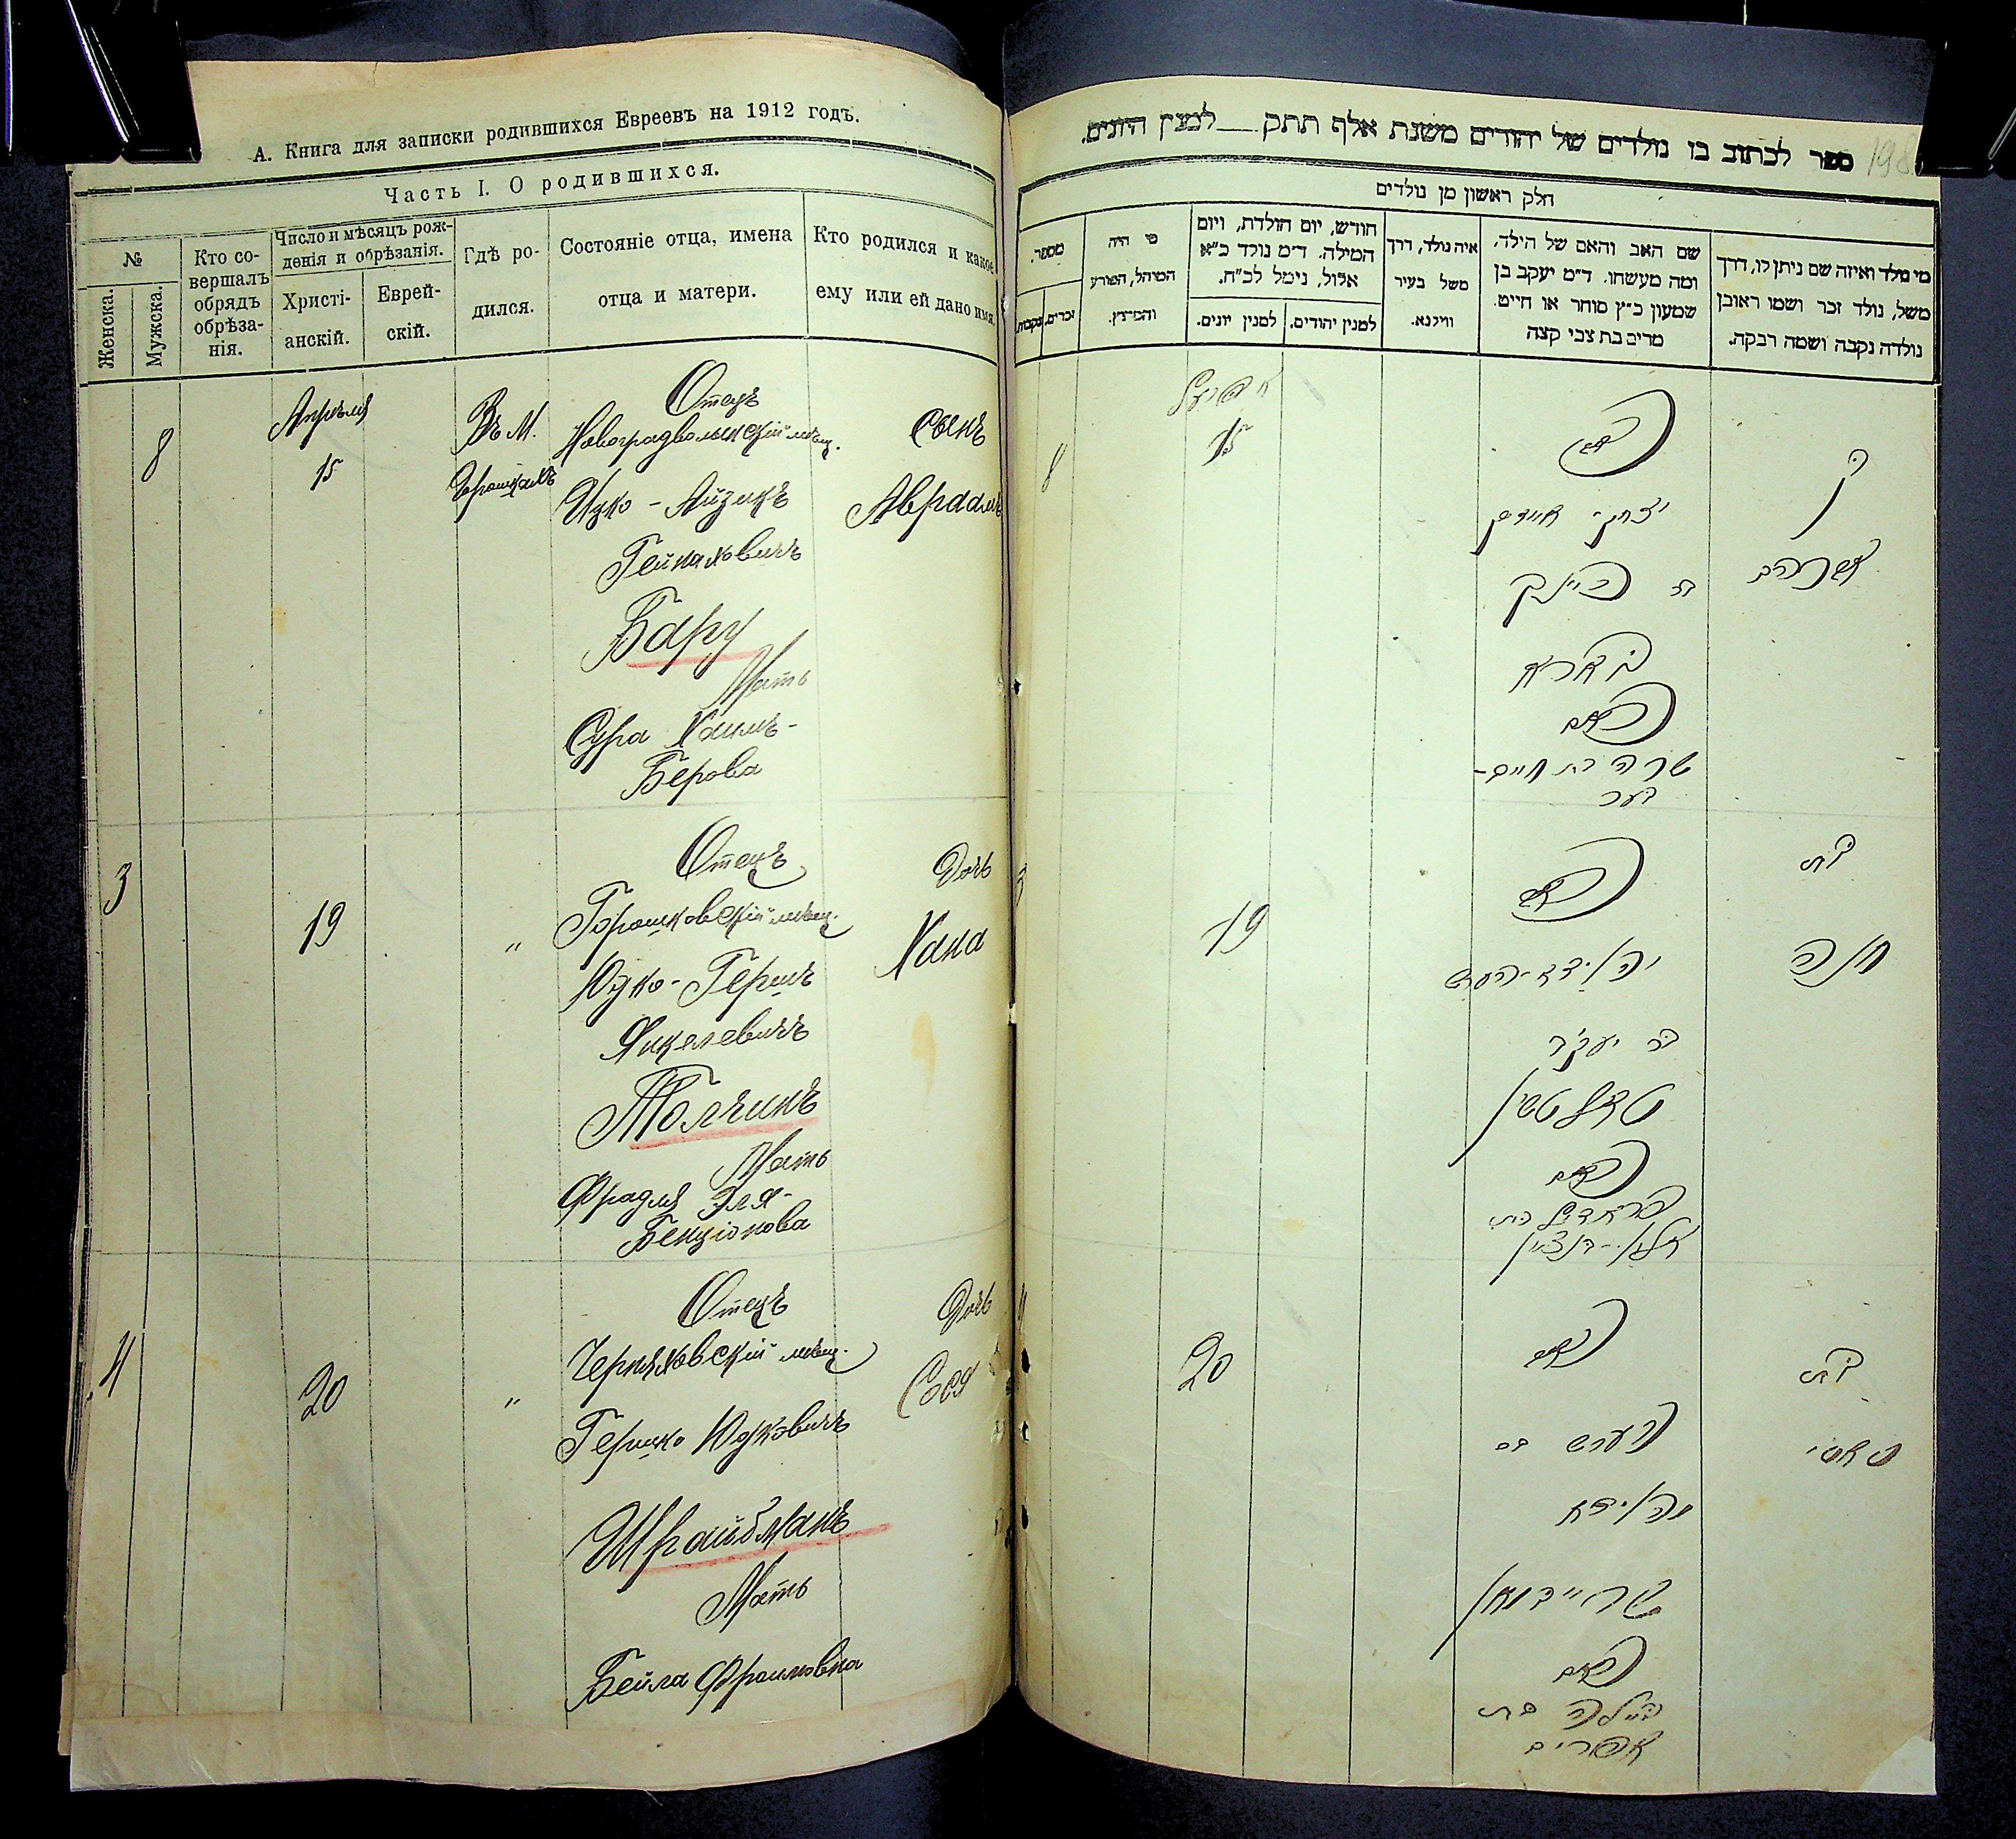 А. Книга для записки родившихся Евреевъ на 1912 годъ.
Часть I. О родившихся.
№
Женска.
Мужска.
Кто со-
вершалъ
обрядъ
обрѣза-
нія.
Число и мѣсяцъ рож-
денія и обрѣзанія.
Христі-
анскій.
Еврей-
скій.
Гдѣ ро-
дился.
Состояніе отца, имена
отца и матери.
Кто родился и какое
ему или ей дано имя.
8
Апрѣля
15
Въ М.
Горошкахъ
Отецъ
Новоградволынскій мѣщ.
Ицко-Айзикъ
Гейнаховичъ
Бару
Мать
Сура Хаимъ-
Берова
Сынъ
Авраамъ
3
19
"
Отецъ
Горошковскій мѣщ.
Юдко-Гершъ
Янкелевичъ
Толчинъ
Мать
Фрадля Эля-
Бенціонова
Дочь
Хана
4
20
"
Отецъ
Черняховскій мѣщ.
Гершко Юдковичъ
Шрайбманъ
Мать
Бейла Фроимовна
Дочь
Сося
ספר לכתוב בו נולדים של יהודים משנת אלף תתק למנין היונים.
198
חלק ראשון מן נולדים
מי נולד ואיזה שם ניתן לו, דרך
משל, נולד זכר ושמו ראובן
נולדה נקבה ושמה רבקה.
שם האב והאם של הילד,
ומה מעשהו. ד״מ יעקב בן
שמעון כ״ץ סוחר או חייט
מרים בת צבי קצה
איה נולד, דרך
משל בעיר
ווילנא.
חודש, יום הולדת, ויום
המילה. ד״מ נולד כ״א
אלול, נימל לכ״ח.
למנין יהודים.
למנין יונים.
מי היה
המוהל, הפורע
והמוצץ.
מספר.
זכרים.
נקבות.
בן
אברהם
האב
יצחק אייזיק
בארא
האם
שרה בת חיים-
בער
אפריל
15
8
בת
חנה
האב
יהודא-הערש
בר יעקב
טאלטשין
האם
פראדיל בת
אלי'-בנציון
19
3
בת
סאסי
האב
הערש בר
יהודא
שרייבמאן
האם
ביילה בת
אפרים
20
4